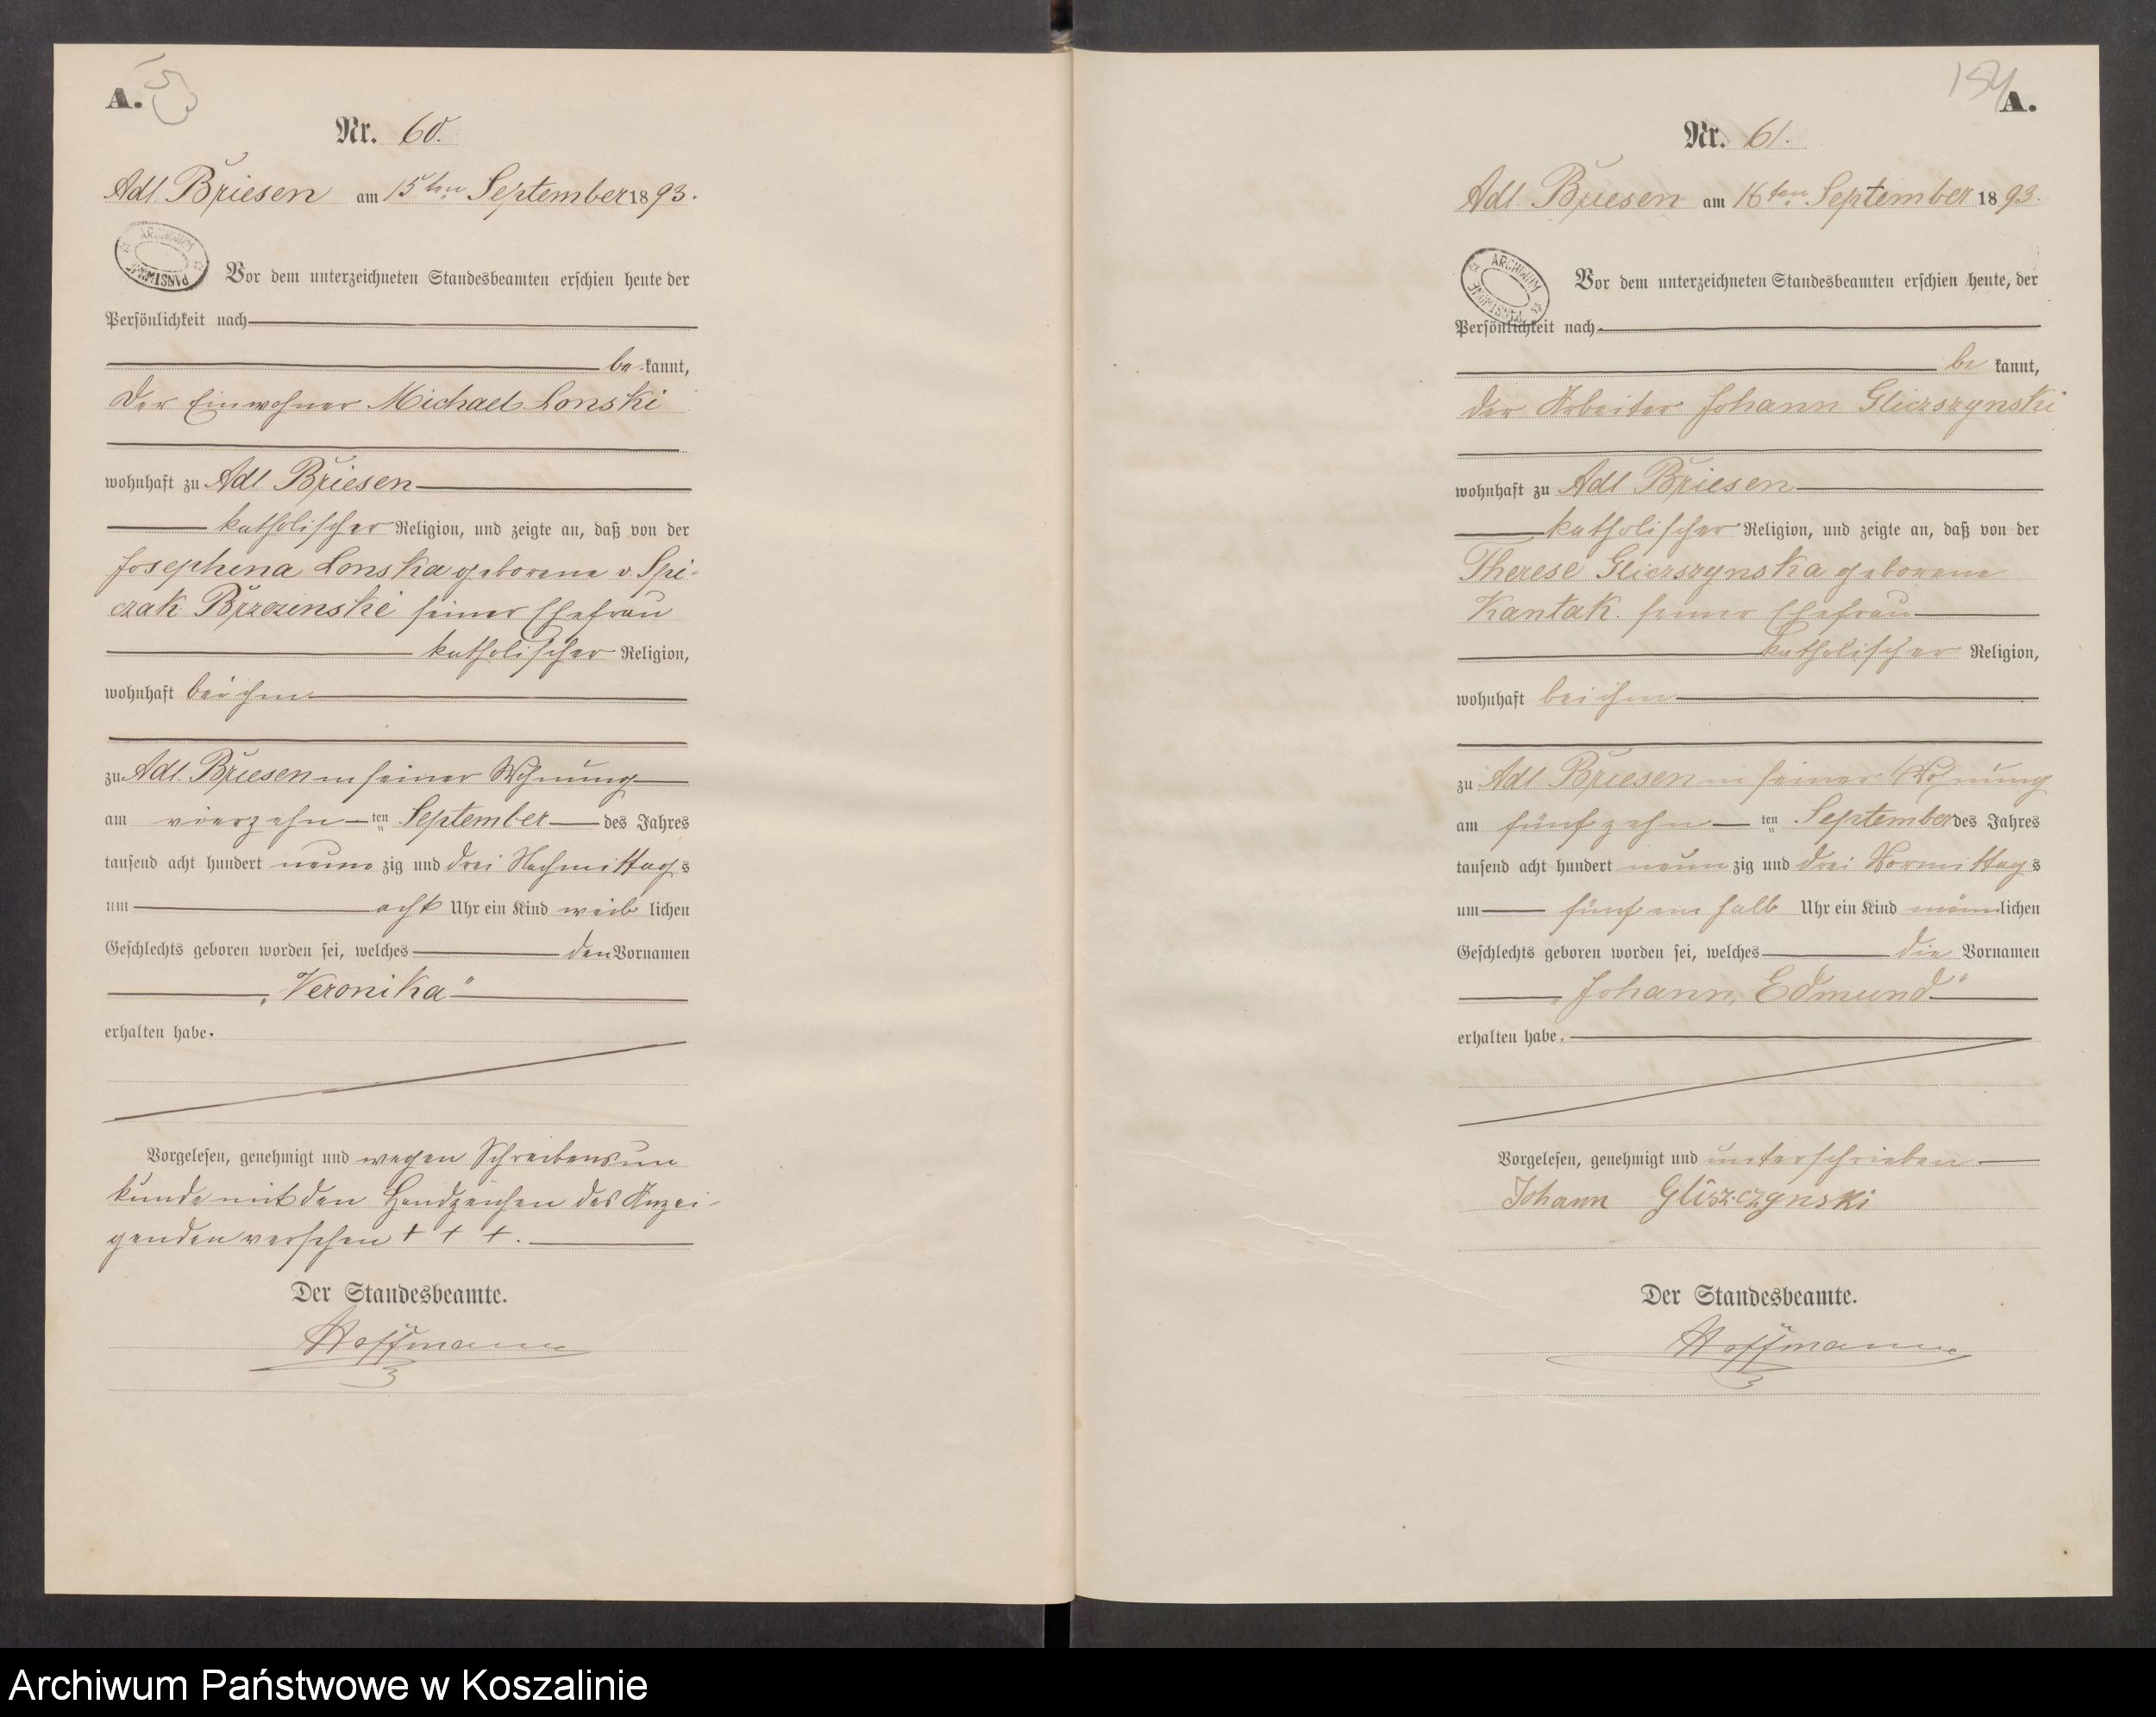 A.
Nr. 60.
Adl. Briesen am 15ten September 1893.
ARCHIWUM PAŃSTWOWE
Vor dem unterzeichneten Standesbeamten erschien heute der
Persönlichkeit nach
be kannt,
der Einwohner Michael Lonski
wohnhaft zu Adl Briesen
katholischer Religion, und zeigte an, daß von der
Josephina Lonska geborene v. Spi-
czak Brzezinski seiner Ehefrau
katholischer Religion,
wohnhaft bei ihm
zu Adl. Briesen in seiner Wohnung
am vierzehn ten September des Jahres
tausend acht hundert neun zig und drei Nachmittags
um acht Uhr ein Kind weib lichen
Geschlechts geboren worden sei, welches den Vornamen
„Veronika“
erhalten habe.
Vorgelesen, genehmigt und wegen Schreibensun
kunde mit den Handzeichen des Anzei-
genden versehen + + +.
Der Standesbeamte.
Hoffmann
154
A.
Nr. 61.
Adl. Briesen am 16ten September 1893.
ARCHIWUM PAŃSTWOWE
Vor dem unterzeichneten Standesbeamten erschien heute, der
Persönlichkeit nach
be kannt,
der Arbeiter Johann Gliczszynski
wohnhaft zu Adl Briesen
katholischer Religion, und zeigte an, daß von der
Therese Gliczszynska geborene
Kantak. seiner Ehefrau
katholischer Religion,
wohnhaft bei ihm
zu Adl Briesen in seiner Wohnung
am fünfzehn ten September des Jahres
tausend acht hundert neun zig und drei Vormittags
um fünf ein halb Uhr ein Kind männlichen
Geschlechts geboren worden sei, welches die Vornamen
„Johann, Edmund“
erhalten habe.
Vorgelesen, genehmigt und unterschrieben
Johann Gliszczynski
Der Standesbeamte.
Hoffmann
Archiwum Państwowe w Koszalinie